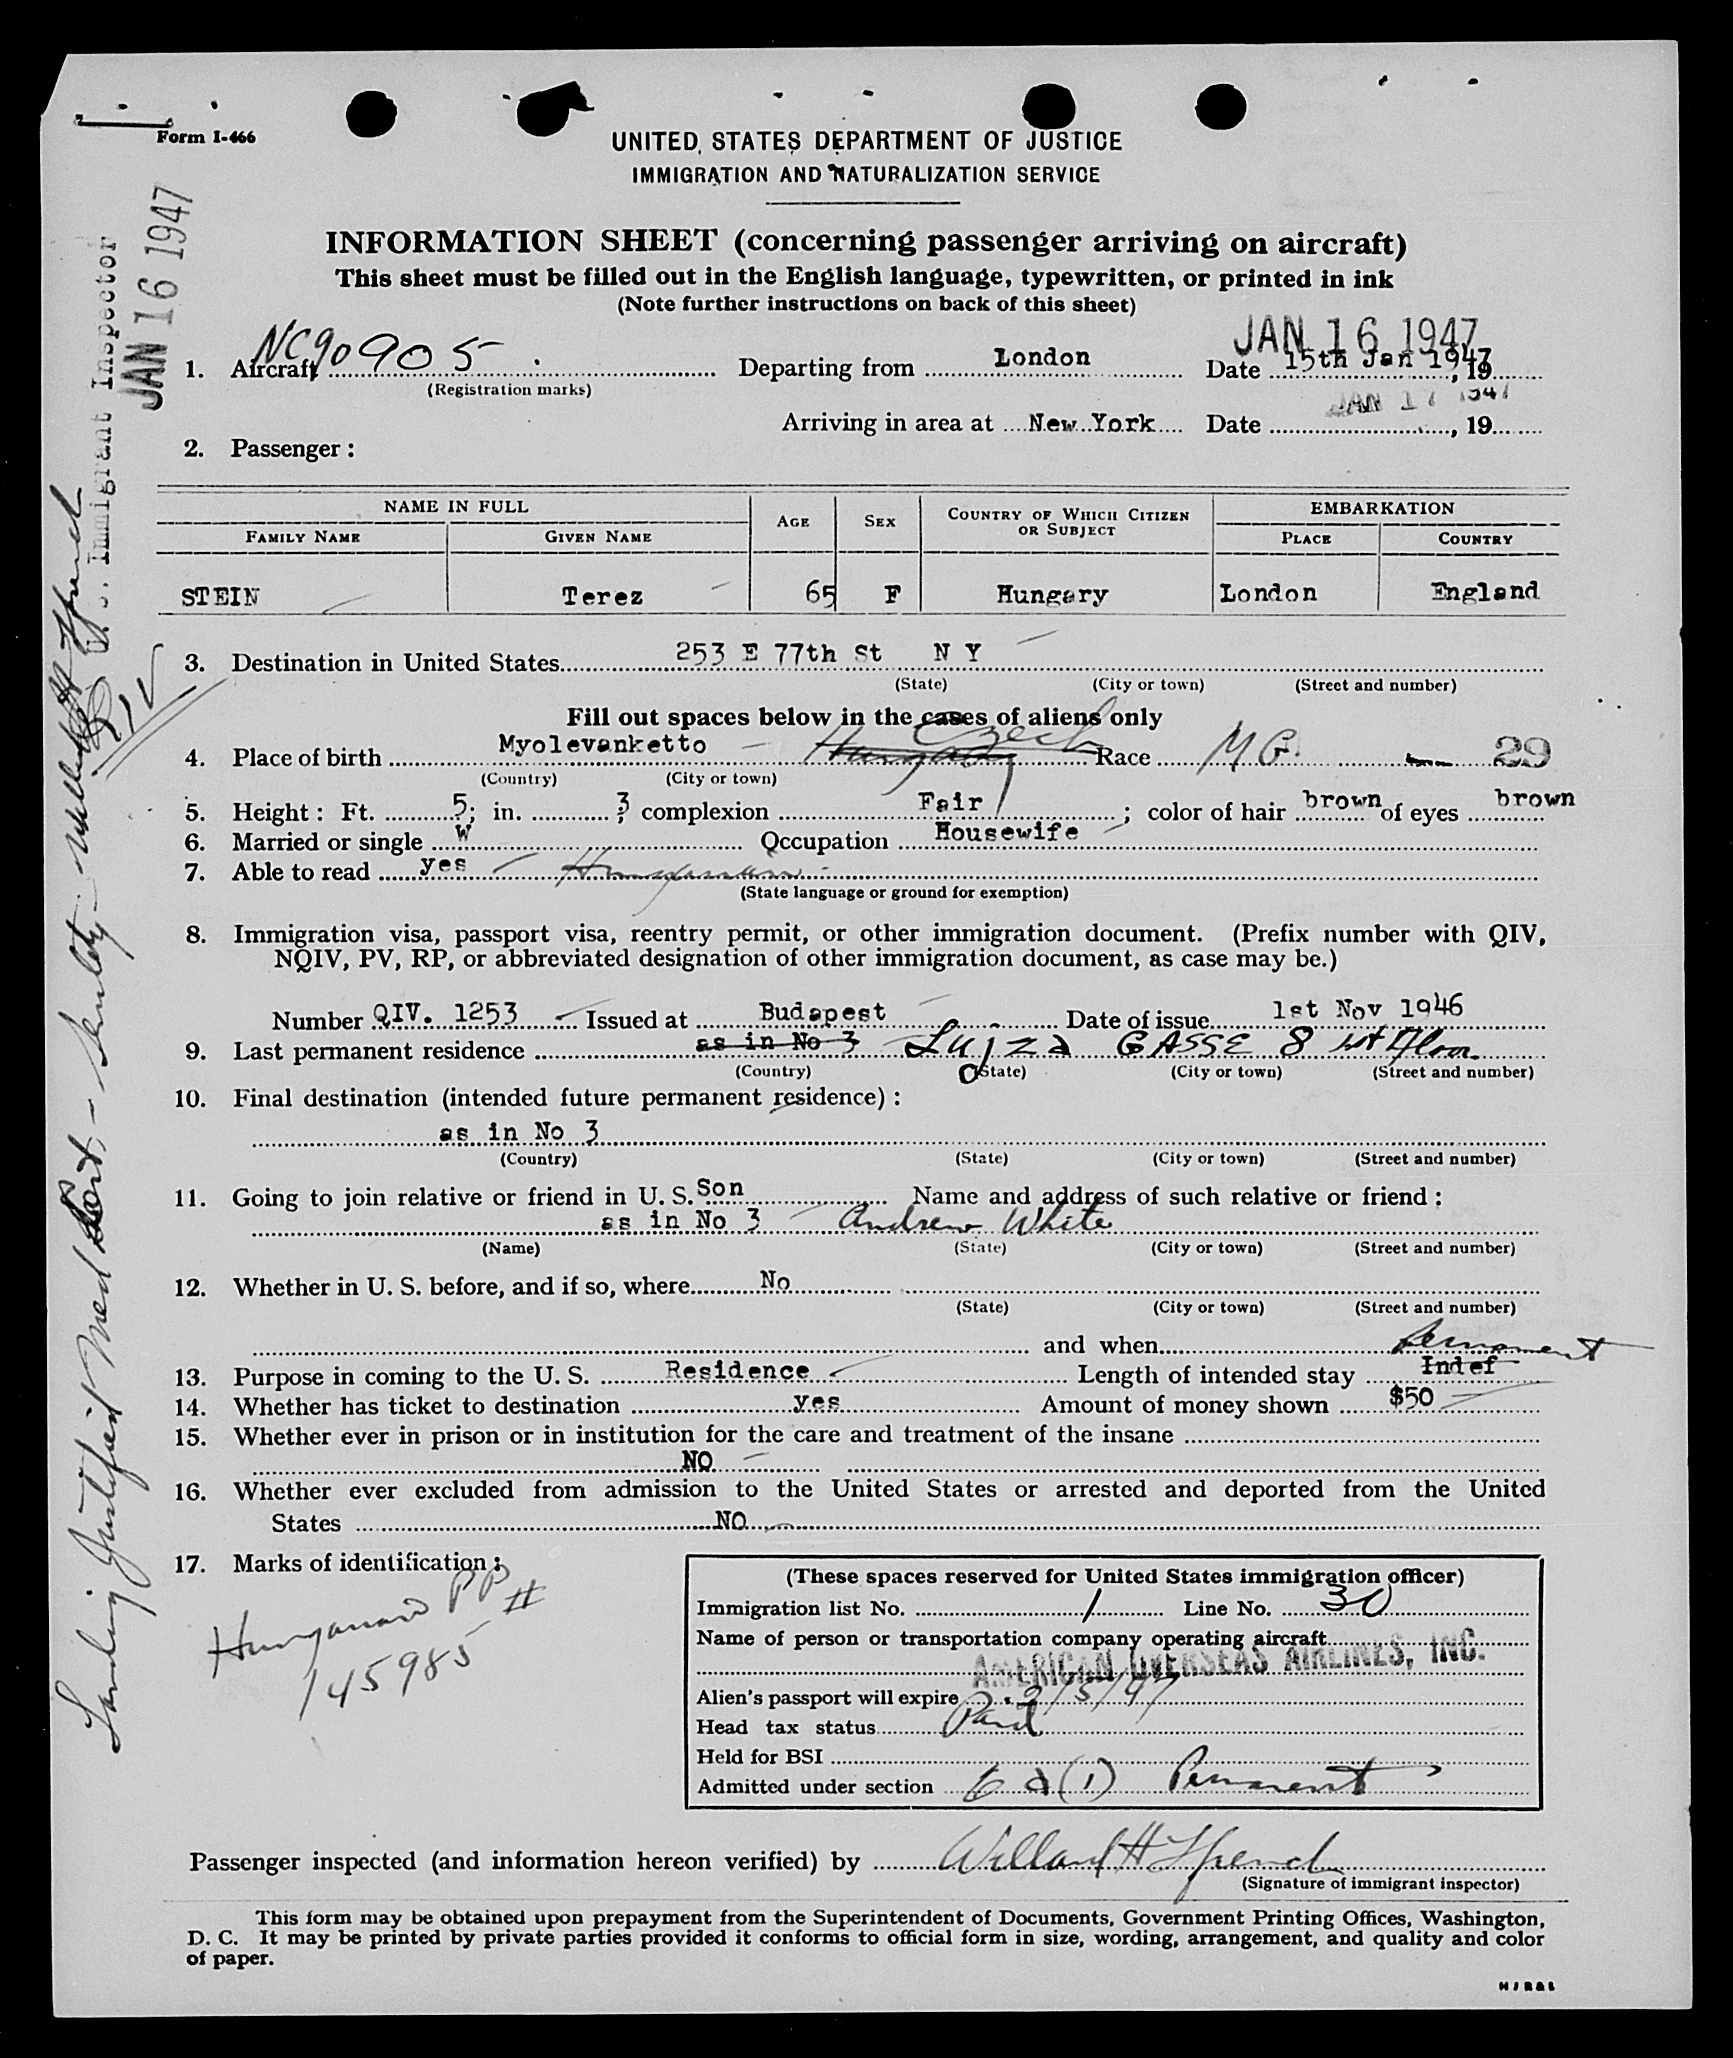 Form I-466
UNITED STATES DEPARTMENT OF JUSTICE
IMMIGRATION AND NATURALIZATION SERVICE
INFORMATION SHEET (concerning passenger arriving on aircraft)
This sheet must be filled out in the English language, typewritten, or printed in ink
(Note further instructions on back of this sheet)
JAN 16 1947
1. Aircraft NC90905 Departing from London Date 15th Jan 1947, 19
(Registration marks)
JAN 17 1947
Arriving in area at New York Date , 19
2. Passenger :
NAME IN FULL AGE SEX COUNTRY OF WHICH CITIZEN OR SUBJECT EMBARKATION
FAMILY NAME GIVEN NAME PLACE COUNTRY
STEIN Terez 65 F Hungary London England
3. Destination in United States 253 E 77th St N Y
(State) (City or town) (Street and number)
Fill out spaces below in the cases of aliens only
Czech
4. Place of birth Myolevanketto Hungary Race M G. 29
(Country) (City or town)
5. Height : Ft. 5; in. 3; complexion Fair ; color of hair brown of eyes brown
6. Married or single W Occupation Housewife
7. Able to read yes Hungarian
(State language or ground for exemption)
8. Immigration visa, passport visa, reentry permit, or other immigration document. (Prefix number with QIV,
NQIV, PV, RP, or abbreviated designation of other immigration document, as case may be.)
Number QIV. 1253 Issued at Budapest Date of issue 1st Nov 1946
9. Last permanent residence as in No 3 Lujza GASSE 8 1st Floor
(Country) (State) (City or town) (Street and number)
10. Final destination (intended future permanent residence) :
as in No 3
(Country) (State) (City or town) (Street and number)
11. Going to join relative or friend in U. S. Son Name and address of such relative or friend :
as in No 3 Andrew White
(Name) (State) (City or town) (Street and number)
12. Whether in U. S. before, and if so, where No
(State) (City or town) (Street and number)
and when
Permanent
13. Purpose in coming to the U. S. Residence Length of intended stay Indef
14. Whether has ticket to destination yes Amount of money shown $50
15. Whether ever in prison or in institution for the care and treatment of the insane
NO
16. Whether ever excluded from admission to the United States or arrested and deported from the United
States NO
17. Marks of identification :
Hungarian PP #
145985
(These spaces reserved for United States immigration officer)
Immigration list No. 1 Line No. 30
Name of person or transportation company operating aircraft
AMERICAN OVERSEAS AIRLINES, INC.
Alien's passport will expire 9/5/47
Head tax status Paid
Held for BSI
Admitted under section 6 a (1) Permanent
Passenger inspected (and information hereon verified) by Willard H
(Signature of immigrant inspector)
This form may be obtained upon prepayment from the Superintendent of Documents, Government Printing Offices, Washington,
D. C. It may be printed by private parties provided it conforms to official form in size, wording, arrangement, and quality and color
of paper.
JAN 16 1947
U. S. Immigrant Inspector
Landing Justified Med Cert - Senility - Willard H
QIV